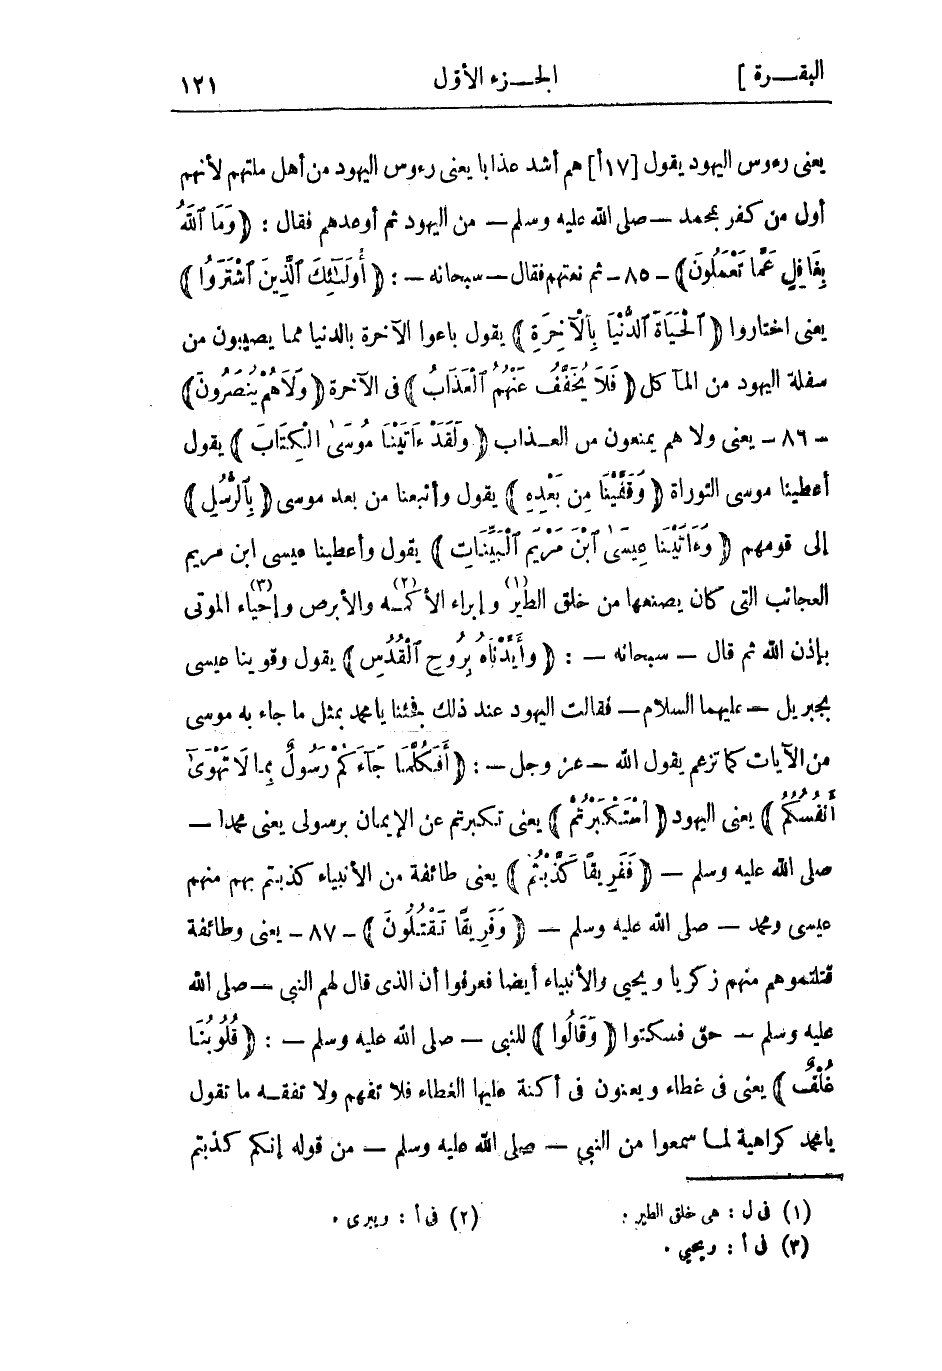 البقــرة ]
الجــزء الأوّل
١٢١
يعنى رءوس اليهود يقول [١٧أ] هم أشد عذابا يعنى رءوس اليهود من أهل ملتهم لأنهم
أول من كفر بمحمد — صلى الله عليه وسلم — من اليهود ثم أوعدهم فقال : ﴿ وَمَا ٱللَّهُ
بِغَافِلٍ عَمَّا تَعْمَلُونَ﴾ - ٨٥ - ثم نعتهم فقال — سبحانه — : ﴿ أُولَـٰئِكَ ٱلَّذِينَ ٱشْتَرَوُا ﴾
يعنى اختاروا ﴿ ٱلْحَيَاةَ ٱلدُّنْيَا بِٱلْآخِرَةِ ﴾ يقول باعوا الآخرة بالدنيا مما يصيبون من
سفلة اليهود من المآكل ﴿ فَلَا يُخَفَّفُ عَنْهُمُ ٱلْعَذَابُ ﴾ فى الآخرة ﴿ وَلَا هُمْ يُنصَرُونَ﴾
- ٨٦ - يعنى ولا هم يمنعون من العــذاب ﴿ وَلَقَدْ ءَاتَيْنَا مُوسَىٰ الْكِتَابَ ﴾ يقول
أعطينا موسى التوراة ﴿ وَقَفَّيْنَا مِن بَعْدِهِ ﴾ يقول وأتبعنا من بعد موسى ﴿ بِٱلرُّسُلِ ﴾
إلى قومهم ﴿ وَءَاتَيْنَا عِيسَىٰ ٱبْنَ مَرْيَمَ ٱلْبَيِّنَاتِ ﴾ يقول وأعطينا عيسى ابن مريم
العجائب التى كان يصنعها من خلق الطير(١) وإبراء الأكمــه(٢) والأبرص وإحياء(٣) الموتى
بإذن الله ثم قال — سبحانه — : ﴿ وأَيَّدْنَاهُ بِرُوحِ ٱلْقُدُسِ ﴾ يقول وقوينا عيسى
بجبريل — عليهما السلام — فقالت اليهود عند ذلك فجئنا يا محمد بمثل ما جاء به موسى
من الآيات كما تزعم يقول الله — عز وجل — : ﴿ أَفَكُلَّمَا جَآءَكُمْ رَسُولٌ بِمَا لَا تَهْوَىٰٓ
أَنفُسُكُمُ ﴾ يعنى اليهود ﴿ ٱسْتَكْبَرْتُمْ ﴾ يعنى تكبرتم عن الإيمان برسولى يعنى محمدا —
صلى الله عليه وسلم — ﴿ فَفَرِيقًا كَذَّبْتُمْ ﴾ يعنى طائفة من الأنبياء كذبتم بهم منهم
عيسى ومحمد — صلى الله عليه وسلم — ﴿ وَفَرِيقًا تَقْتُلُونَ ﴾ - ٨٧ - يعنى وطائفة
قتلتموهم منهم زكريا ويحيى والأنبياء أيضا فعرفوا أن الذى قال لهم النبى — صلى الله
عليه وسلم — حق فسكتوا ﴿ وَقَالُوا ﴾ للنبى — صلى الله عليه وسلم — : ﴿ قُلُوبُنَا
غُلْفٌ ﴾ يعنى فى غطاء ويعنون فى أكنة عليها الغطاء فلا تفهم ولا تفقــه ما تقول
يا محمد كراهية لمــا سمعوا من النبى — صلى الله عليه وسلم — من قوله إنكم كذبتم
(١) فى ل : هى خلق الطير .
(٢) فى أ : ويبرى .
(٣) فى أ : ويحيى .